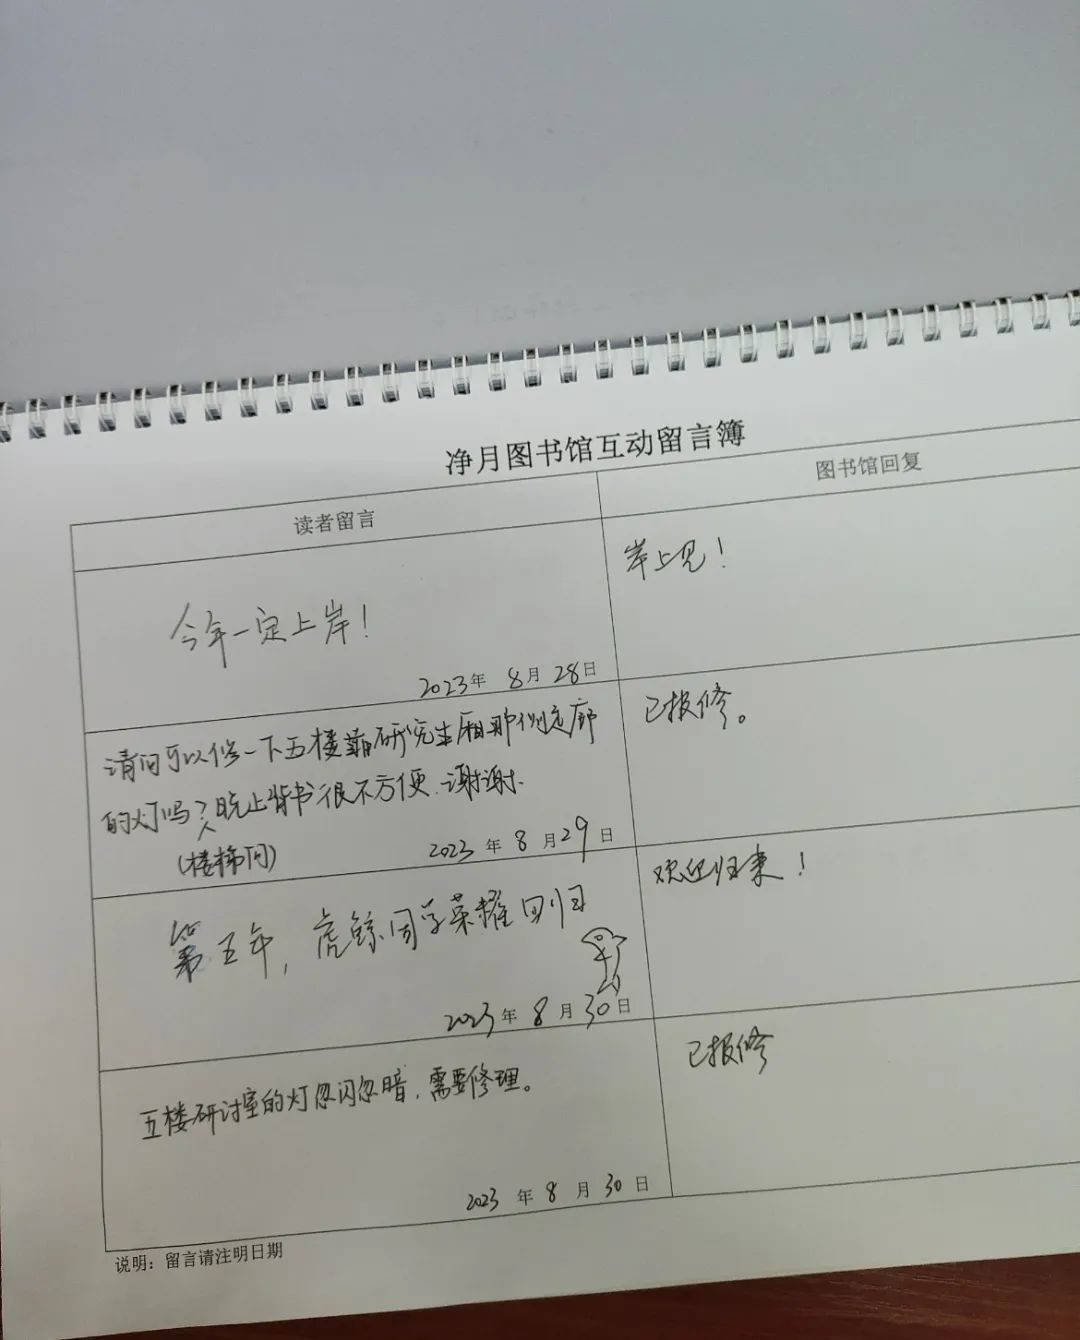 净月图书馆互动留言簿
读者留言
图书馆回复
今年一定上岸！
2023年 8月 28日
岸上见！
请问可以修一下五楼靠研究生厢那侧走廊
的灯吗？晚上背书很不方便．谢谢．
(楼梯间)
2023 年 8 月29日
已报修。
第五年，虎鲸同学荣耀回归
2023 年 8 月 30日
欢迎归来！
五楼研讨室的灯忽闪忽暗，需要修理。
2023 年 8 月 30 日
已报修
说明：留言请注明日期